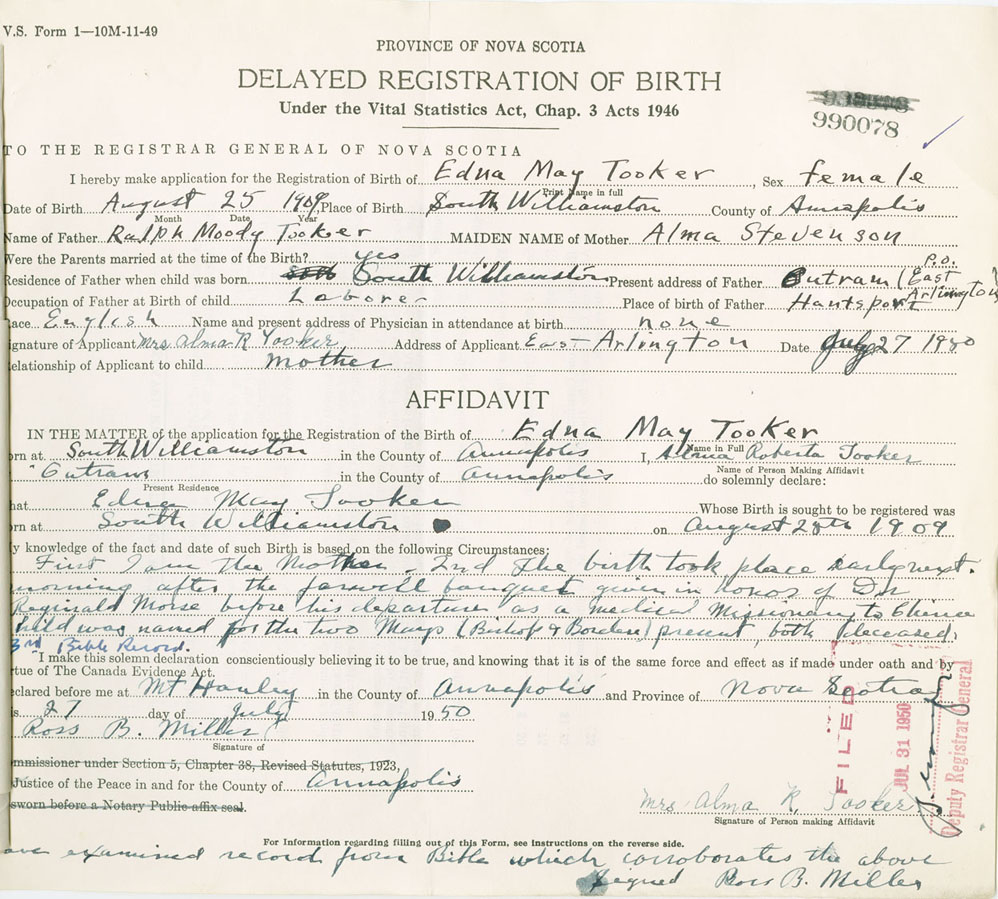 V.S. Form 1—10M-11-49
PROVINCE OF NOVA SCOTIA
DELAYED REGISTRATION OF BIRTH
Under the Vital Statistics Act, Chap. 3 Acts 1946
990078
TO THE REGISTRAR GENERAL OF NOVA SCOTIA
I hereby make application for the Registration of Birth of Edna May Tooker, Sex female
Print Name in full
Date of Birth August 25 1909, Place of Birth South Williamston County of Annapolis
Month Date Year
Name of Father Ralph Moody Tooker MAIDEN NAME of Mother Alma Stevenson
Were the Parents married at the time of the Birth? yes
P.O.
Residence of Father when child was born South Williamston Present address of Father Outram (East Arlington)
Occupation of Father at Birth of child Laborer Place of birth of Father Hantsport
ace English Name and present address of Physician in attendance at birth none
ignature of Applicant Mrs Alma R Tooker Address of Applicant East Arlington Date July 27 1950
elationship of Applicant to child mother
AFFIDAVIT
IN THE MATTER of the application for the Registration of the Birth of Edna May Tooker
Name in Full
orn at South Williamston in the County of Annapolis I, Alma Roberta Tooker
Name of Person Making Affidavit
" Outram in the County of Annapolis do solemnly declare:
Present Residence
hat Edna May Tooker Whose Birth is sought to be registered was
orn at South Williamston on August 25th 1909
y knowledge of the fact and date of such Birth is based on the following Circumstances:
First I am the Mother. 2nd The birth took place early next
morning after the farwell banquet given in honor of Dr
Reginald Morse before his departure as a medical Missionary to China
hild was named for the two Mays (Bishop & Borden) present both deceased.
3rd Bible Record.
I make this solemn declaration conscientiously believing it to be true, and knowing that it is of the same force and effect as if made under oath and by
rtue of The Canada Evidence Act.
eclared before me at Mt Hanley in the County of Annapolis and Province of Nova Scotia
is 27 day of July 1950
Ross B. Miller
Signature of
mmissioner under Section 5, Chapter 38, Revised Statutes, 1923,
Justice of the Peace in and for the County of Annapolis
sworn before a Notary Public affix seal.
FILED
JUL 31 1950
Deputy Registrar General
Mrs Alma R. Tooker
Signature of Person making Affidavit
For Information regarding filling out of this Form, see instructions on the reverse side.
ave examined record from Bible which corroborates the above
Signed Ross B. Miller